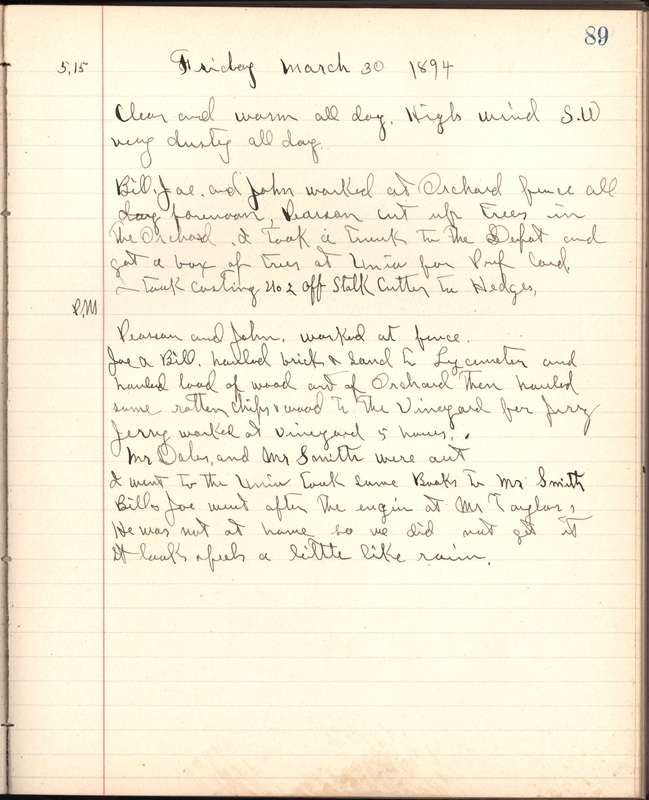 89
5,15 Friday March 30 1894
Clear and warm all day. High wind S.W
very dusty all day.
Bill, Joe. and John worked at Orchard fence all
day forenoon, Pearson cut up trees in
the Orchard. I took a trunk to the Depot and
got a box of trees at Univ for Prof Card.
I took casting No 2 off Stalk Cutter to Hedges,
P.M
Pearson and John, worked at fence.
Joe & Bill. hauled brick & sand to Lycimeter and
hauled load of wood out of Orchard then hauled
some rotten chips & wood to the Vineyard for Jerry
Jerry worked at vineyard 5 hours.
Mr Dales, and Mr Smith were out
I went to the Univ took some Books to Mr Smith
Bill & Joe went after the engin at Mr Taylors
He was not at home so we did not get it
It looks & feels a little like rain.